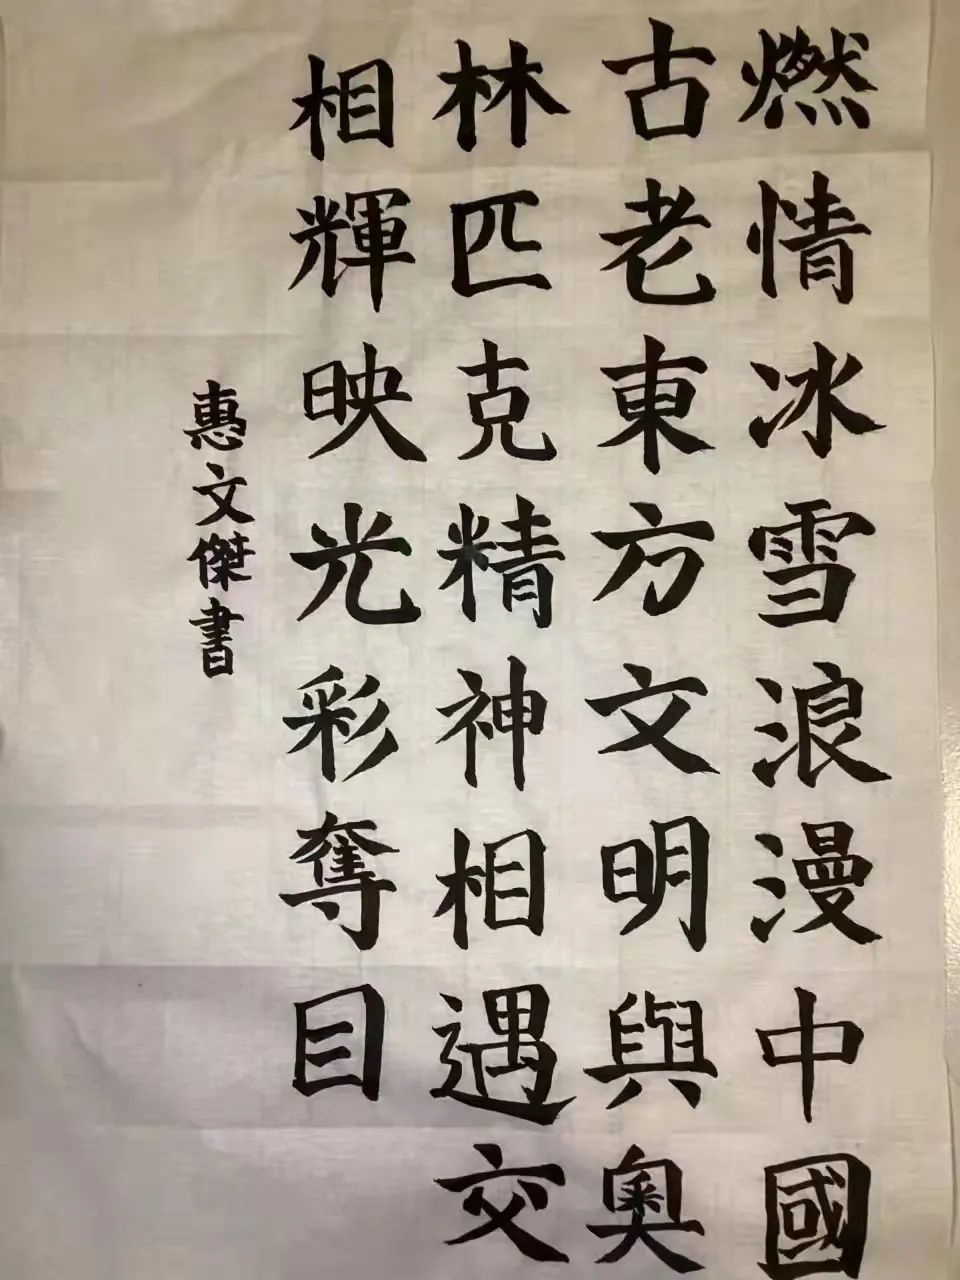 燃情冰雪浪漫中國
古老東方文明與奥
林匹克精神相遇交
相輝映光彩奪目
惠文傑書